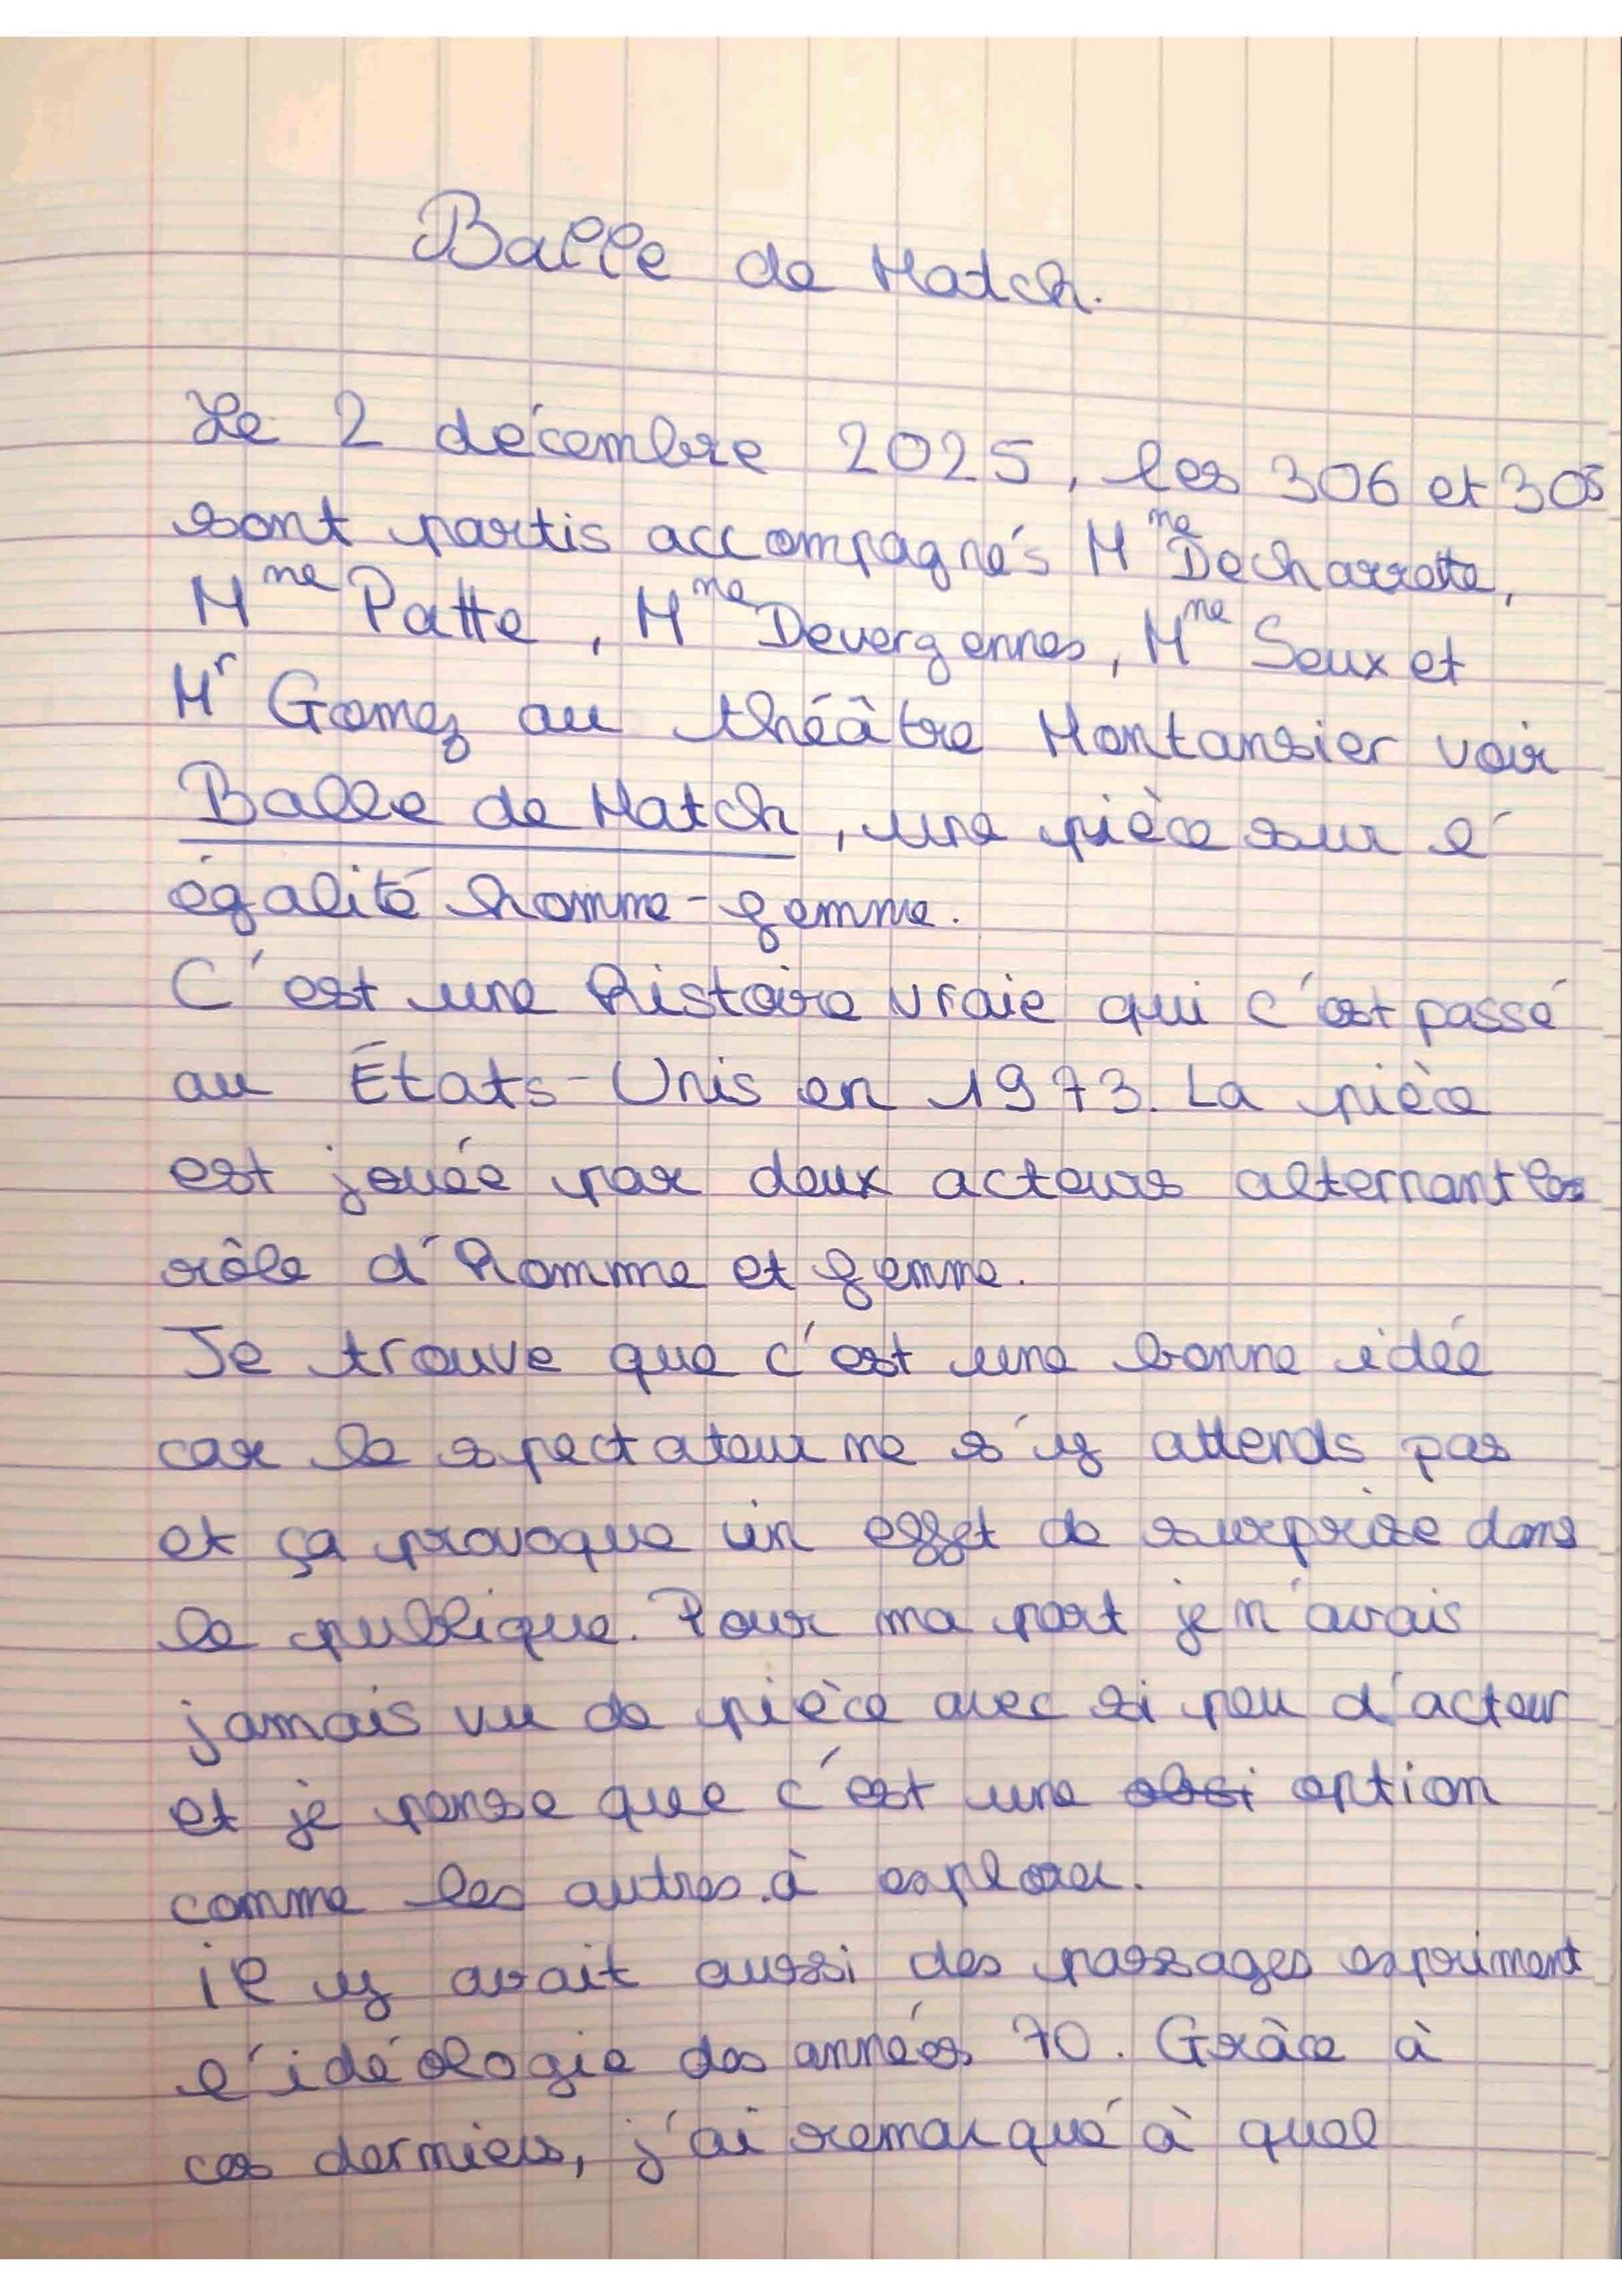 Balle de Match.
Le 2 décembre 2025, les 306 et 305
sont partis accompagnés Mme Decharrette,
Mme Patte, Mme Devergennes, Mme Seux et
Mr Gomez au théâtre Montansier voir
Balle de Match, une pièce sur l'
égalité homme-femme.
C'est une histoire vraie qui c'est passé
au États-Unis en 1973. La pièce
est jouée par deux acteurs alternant les
rôle d'homme et femme.
Je trouve que c'est une bonne idée
car le spectateur ne s'y attends pas
et ça provoque un effet de surprise dans
le publique. Pour ma part je n'avais
jamais vu de pièce avec si peu d'acteur
et je pense que c'est une option
comme les autres à explorer.
il y avait aussi des passages expriment
l'idéologie des années 70. Grâce à
ces derniers, j'ai remarqué à quel